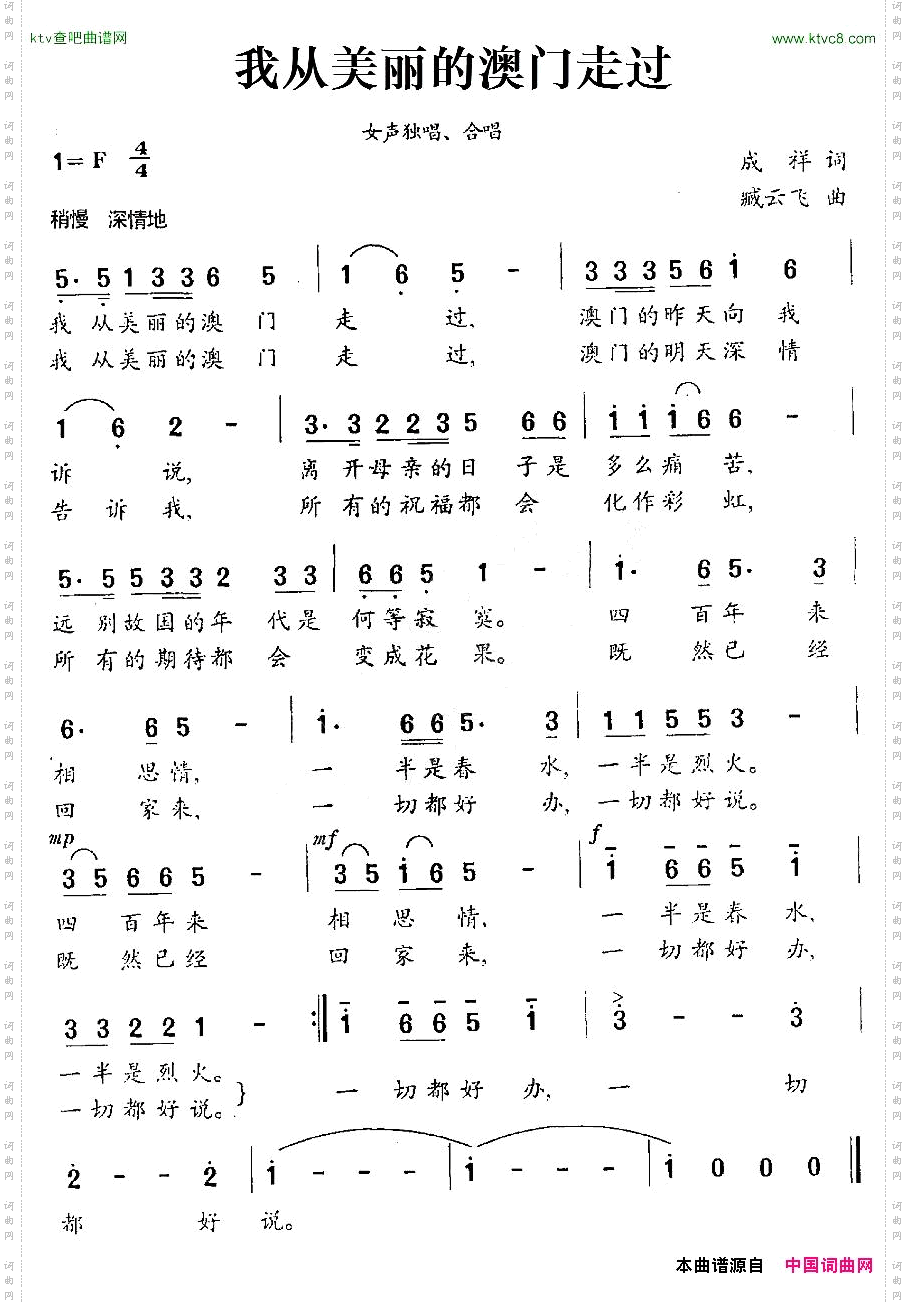 ktv查吧曲谱网
www.ktvc8.com
我从美丽的澳门走过
女声独唱、合唱
1=F 4/4
成祥词
臧云飞曲
稍慢 深情地
5. 5 1 3 3 6 5 | 1 6 5 - | 3 3 3 5 6 1 6 |
我从美丽的澳门走过,澳门的昨天向我
我从美丽的澳门走过,澳门的明天深情
1 6 2 - | 3. 3 2 2 3 5 6 6 | 1 1 1 6 6 - |
诉说,离开母亲的日子是多么痛苦,
告诉我,所有的祝福都会化作彩虹,
5. 5 5 3 3 2 3 3 | 6 6 5 1 - | 1. 6 5. 3 |
远别故国的年代是何等寂寞。四百年来
所有的期待都会变成花果。既然已经
6. 6 5 - | 1. 6 6 5. 3 | 1 1 5 5 3 - |
相思情,一半是春水,一半是烈火。
回家来,一切都好办,一切都好说。
mp mf f
3 5 6 6 5 - | 3 5 1 6 5 - | 1 6 6 5 1 |
四百年来相思情,一半是春水,
既然已经回家来,一切都好办,
3 3 2 2 1 - :‖ 1 6 6 5 1 | 3 - - 3 |
一半是烈火。
一切都好说。} 一切都好办,一切
2 - - 2 | 1 - - - | 1 - - - | 1 0 0 0 ‖
都好说。
本曲谱源自 中国词曲网
词曲网